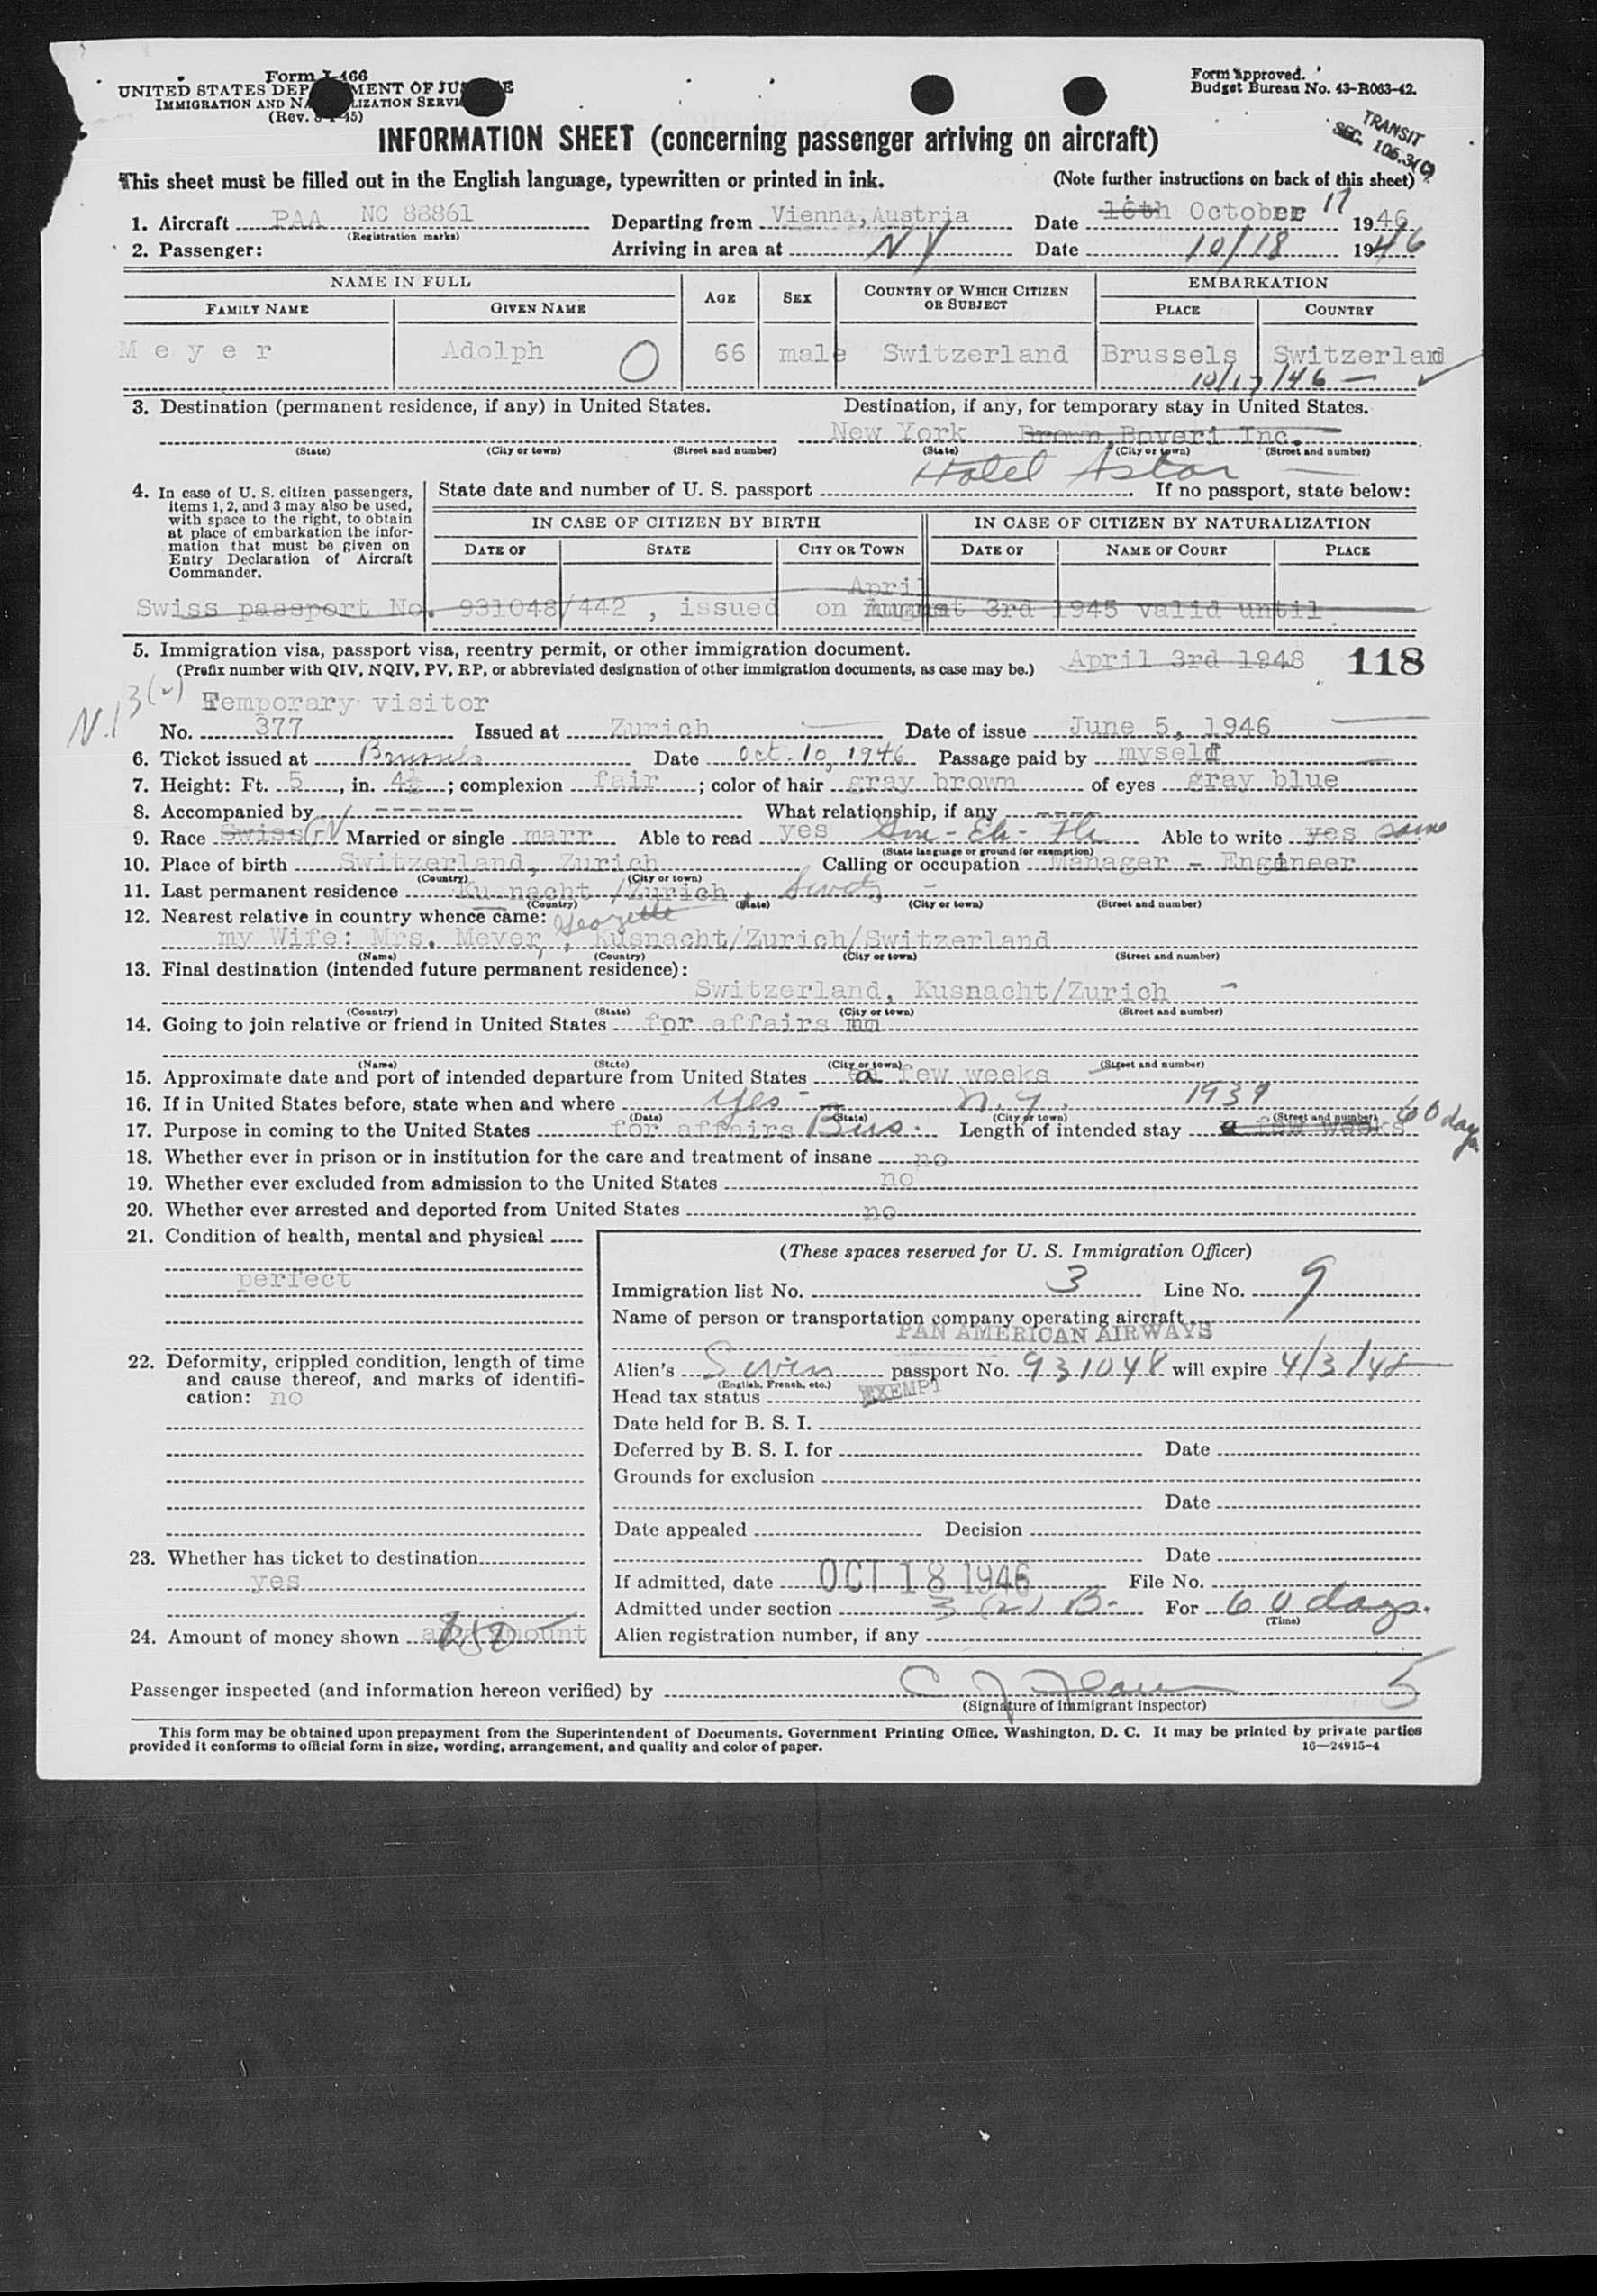 Form I-466
UNITED STATES DEPARTMENT OF JUSTICE
IMMIGRATION AND NATURALIZATION SERVICE
(Rev. 45)
Form approved.
Budget Bureau No. 43-R063-42.
INFORMATION SHEET (concerning passenger arriving on aircraft)
TRANSIT
SEC. 105.3(c)
This sheet must be filled out in the English language, typewritten or printed in ink. (Note further instructions on back of this sheet)
1. Aircraft PAA NC 88861 Departing from Vienna, Austria Date 16th October 17 1946
(Registration marks)
2. Passenger: Arriving in area at N Y Date 10/18 1946
NAME IN FULL AGE SEX COUNTRY OF WHICH CITIZEN OR SUBJECT EMBARKATION
FAMILY NAME GIVEN NAME PLACE COUNTRY
Meyer Adolph O 66 male Switzerland Brussels Switzerland
10/17/46 —
3. Destination (permanent residence, if any) in United States. Destination, if any, for temporary stay in United States.
New York Brown, Boveri Inc.
(State) (City or town) (Street and number) (State) (City or town) (Street and number)
Hotel Astor
4. In case of U. S. citizen passengers, items 1, 2, and 3 may also be used, with space to the right, to obtain at place of embarkation the information that must be given on Entry Declaration of Aircraft Commander.
State date and number of U. S. passport If no passport, state below:
IN CASE OF CITIZEN BY BIRTH IN CASE OF CITIZEN BY NATURALIZATION
DATE OF STATE CITY OR TOWN DATE OF NAME OF COURT PLACE
April
Swiss passport No. 931048/442, issued on August 3rd 1945 valid until
5. Immigration visa, passport visa, reentry permit, or other immigration document.
(Prefix number with QIV, NQIV, PV, RP, or abbreviated designation of other immigration documents, as case may be.) April 3rd 1948 118
3(2) Temporary visitor
No. 377 Issued at Zurich Date of issue June 5, 1946
6. Ticket issued at Brussels Date Oct. 10, 1946 Passage paid by myself
7. Height: Ft. 5, in. 4½; complexion fair; color of hair gray brown of eyes gray blue
8. Accompanied by ------ What relationship, if any ----
9. Race Swiss Married or single marr. Able to read yes Able to write yes same
(State language or ground for exemption)
10. Place of birth Switzerland, Zurich Calling or occupation Manager - Engineer
(Country) (City or town)
11. Last permanent residence Kusnacht /Zurich,
(Country) (State) (City or town) (Street and number)
12. Nearest relative in country whence came: Georgette
my Wife: Mrs. Meyer, Kusnacht/Zurich/Switzerland
(Name) (Country) (City or town) (Street and number)
13. Final destination (intended future permanent residence):
Switzerland, Kusnacht/Zurich -
(Country) (State) (City or town) (Street and number)
14. Going to join relative or friend in United States for affairs
(Name) (State) (City or town) (Street and number)
15. Approximate date and port of intended departure from United States a few weeks
16. If in United States before, state when and where yes - N.Y. 1939
(Date) (State) (City or town) (Street and number)
17. Purpose in coming to the United States for affairs Bus. Length of intended stay a few weeks 60 days
18. Whether ever in prison or in institution for the care and treatment of insane no
19. Whether ever excluded from admission to the United States no
20. Whether ever arrested and deported from United States no
21. Condition of health, mental and physical
perfect
22. Deformity, crippled condition, length of time and cause thereof, and marks of identification: no
23. Whether has ticket to destination
yes
24. Amount of money shown
(These spaces reserved for U. S. Immigration Officer)
Immigration list No. 3 Line No. 9
Name of person or transportation company operating aircraft
PAN AMERICAN AIRWAYS
Alien's Swiss passport No. 931048 will expire 4/3/48
(English, French, etc.)
Head tax status EXEMPT
Date held for B. S. I.
Deferred by B. S. I. for Date
Grounds for exclusion
Date
Date appealed Decision
Date
If admitted, date OCT 18 1946 File No.
Admitted under section 3(2) B. For 60 days.
(Time)
Alien registration number, if any
Passenger inspected (and information hereon verified) by 5
(Signature of immigrant inspector)
This form may be obtained upon prepayment from the Superintendent of Documents, Government Printing Office, Washington, D. C. It may be printed by private parties
provided it conforms to official form in size, wording, arrangement, and quality and color of paper. 16—24915-4